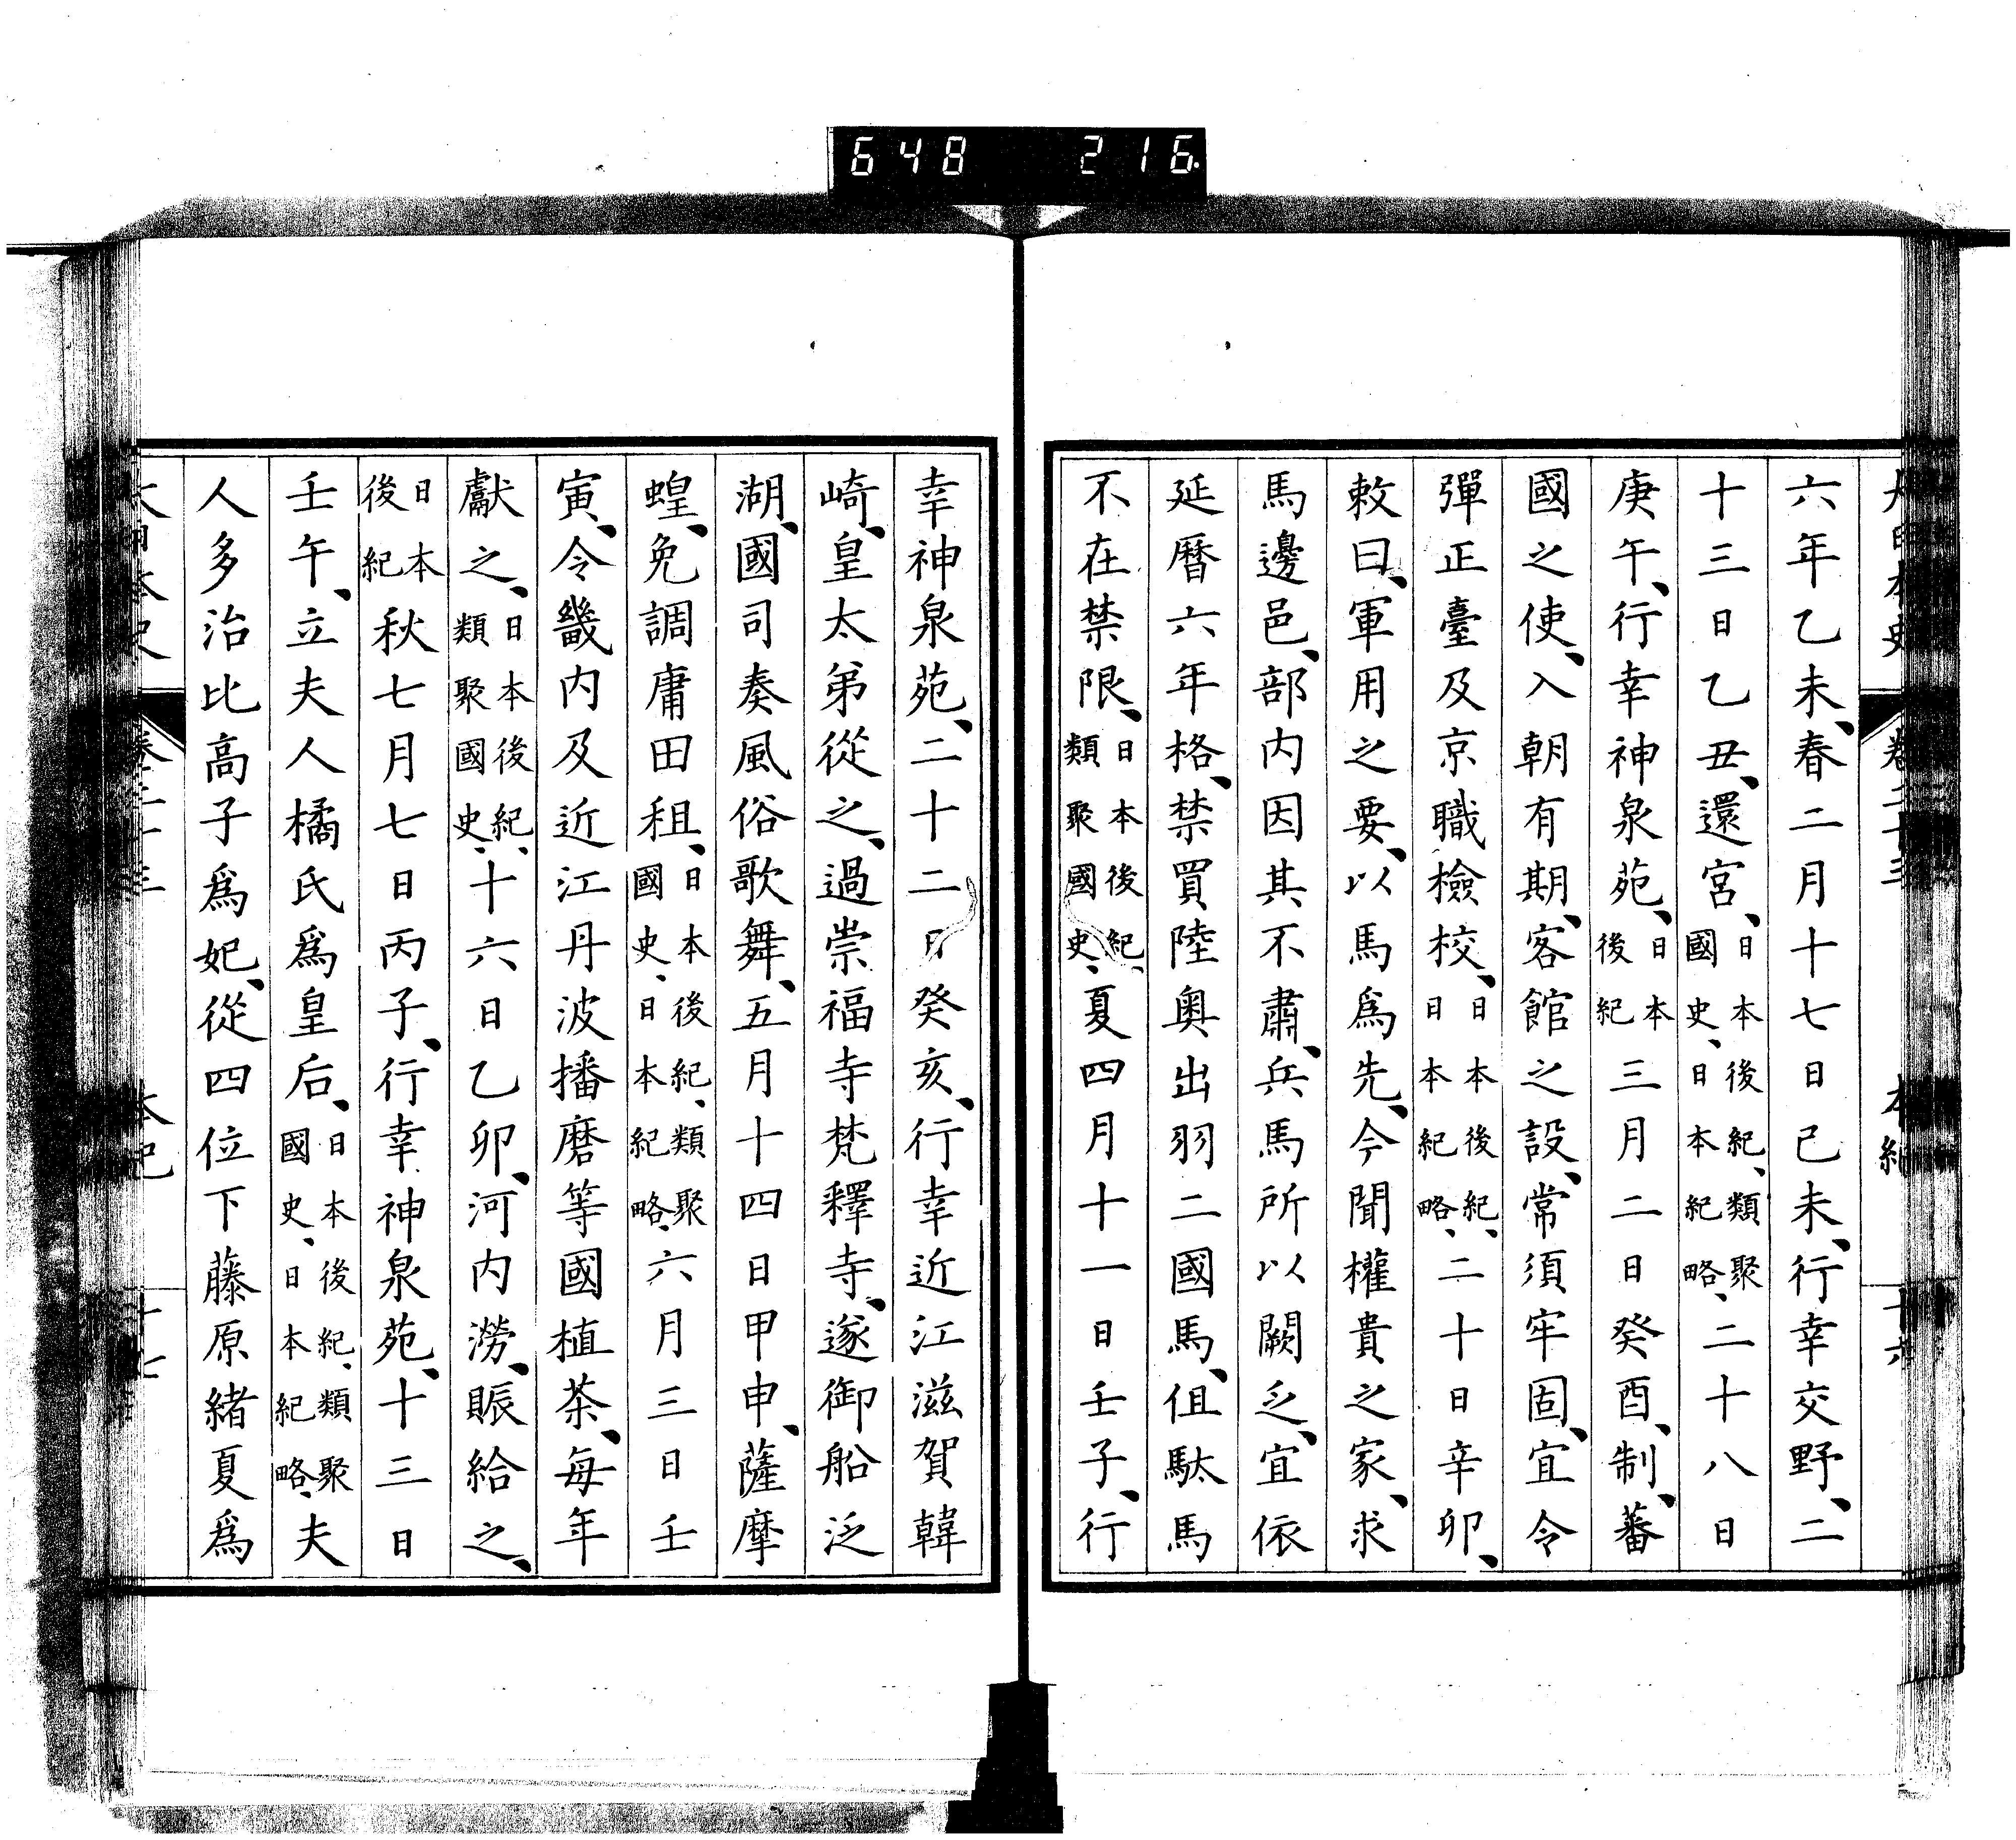 648 216
大日本史 卷二十三 本紀 十六
六年乙未、春二月十七日己未、行幸交野、二
十三日乙丑、還宮、日本後紀、類聚國史、日本紀略、二十八日
庚午、行幸神泉苑、日本後紀三月二日癸酉、制、蕃
國之使、入朝有期、客館之設、常須牢固、宜令
彈正臺及京職檢校、日本後紀、日本紀略、二十日辛卯、
敕曰、軍用之要、以馬爲先、今聞權貴之家、求
馬邊邑、部内因其不肅、兵馬所以闕乏、宜依
延曆六年格、禁買陸奧出羽二國馬、但駄馬
不在禁限、日本後紀、類聚國史、夏四月十一日壬子、行
幸神泉苑、二十二日癸亥、行幸近江滋賀韓
崎、皇太弟從之、過崇福寺梵釋寺、遂御船泛
湖、國司奏風俗歌舞、五月十四日甲申、薩摩
蝗、免調庸田租、日本後紀、類聚國史、日本紀略、六月三日壬
寅、令畿内及近江丹波播磨等國植茶、每年
獻之、日本後紀、類聚國史、十六日乙卯、河内澇、賑給之、
日本後紀秋七月七日丙子、行幸神泉苑、十三日
壬午、立夫人橘氏爲皇后、日本後紀、類聚國史、日本紀略、夫
人多治比高子爲妃、從四位下藤原緒夏爲
大日本史 卷二十三 本紀 十七